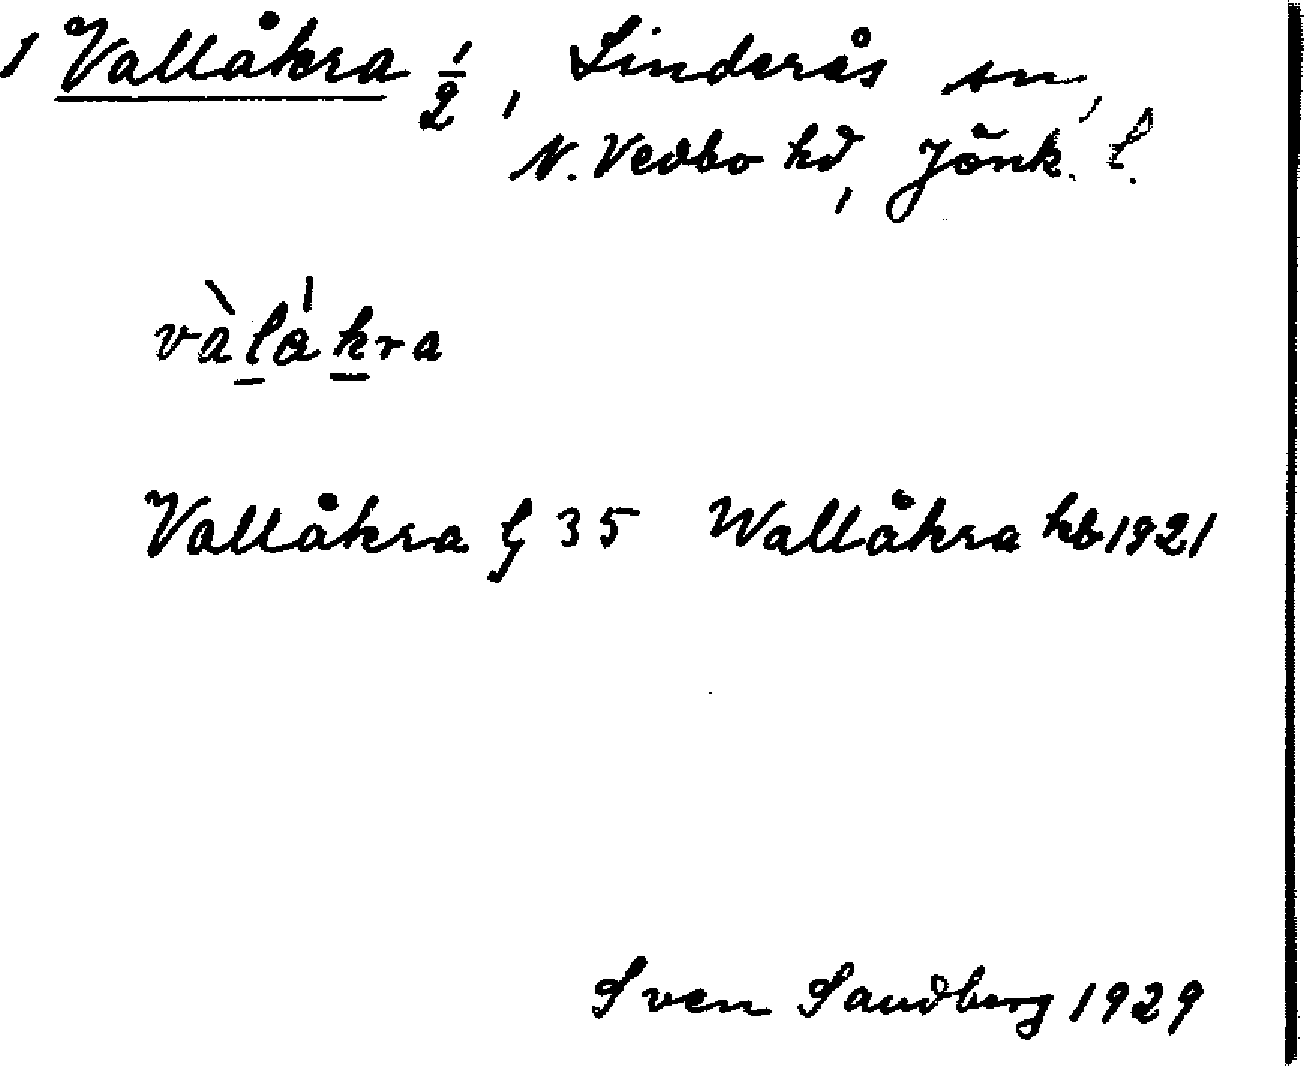 1 Vallåkra ½, Linderås sn,
N. Vedbo hd, Jönk. l.
vàlákra
Vallåkra G 35 Wallåkra hb 1921
Sven Sandberg 1929